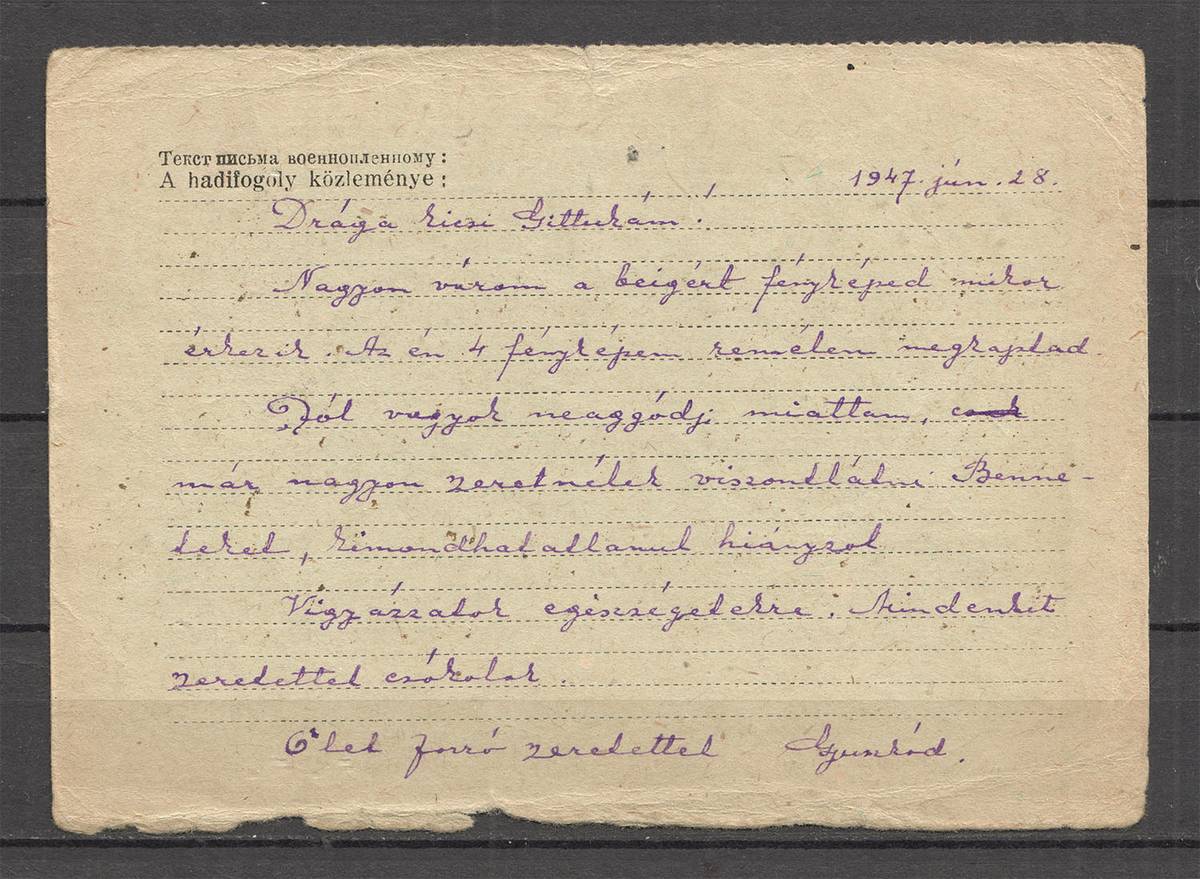 Текст письма военнопленному:
A hadifogoly közleménye:
1947. jún. 28.
Drága kicsi Gittukám!
Nagyon várom a beigért fényképed mikor
érkezik. Az én 4 fényképem remélem megkaptad.
Jól vagyok neaggódj miattam, csak
már nagyon zeretnélek viszontlátni Benne-
teket, kimondhatatlanul hiányzol
Vigyázzatok egészségetekre. Mindenkit
zeretettel csókolok.
Ölel forró zeretettel